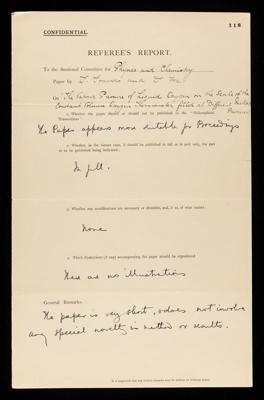 118
CONFIDENTIAL.
REFEREE'S REPORT.
To the Sectional Committee for Physics and Chemistry
Paper by M. Travers and C. Fox
On "The Vapour Pressure of Liquid Oxygen on the Scale of the
Constant Volume Oxygen Thermometer filled at Different Initial
Pressures
1. Whether the paper should or should not be published in the "Philosophical
Transactions"?
The Paper appears more suitable for Proceedings
2. Whether, in the former case, it should be published in full or in part only, the part
so to be published being indicated?
In full.
3. Whether any modifications are necessary or desirable, and, if so, of what nature?
None
4. Which illustrations (if any) accompanying the paper should be reproduced?
There are no illustrations
General Remarks.
The paper is very short, & does not involve
any special novelty in method or results.
It is requested that any further remarks may be written on